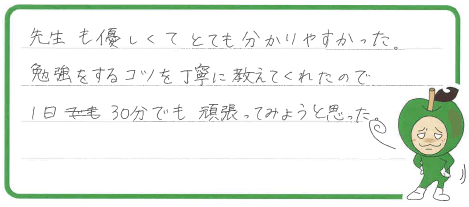 先生も優しくてとても分かりやすかった。
勉強をするコツを丁寧に教えてくれたので
1日 30分でも頑張ってみようと思った。